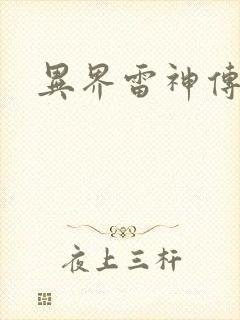 異界雷神傳
夜上三杆